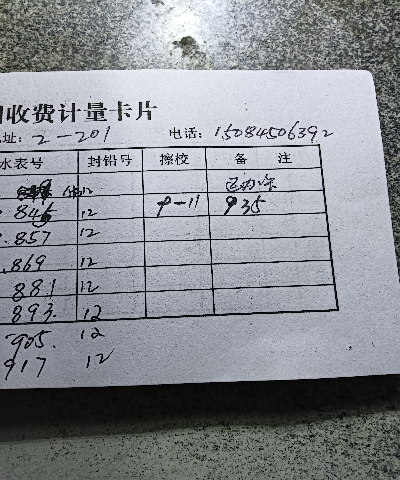 收费计量卡片
址: 2-201 电话: 15084506392
水表号 封铅号 擦校 备 注
12
845 12 9-11 935
.857 12
.869 12
881 12
893. 12
905. 12
917 12